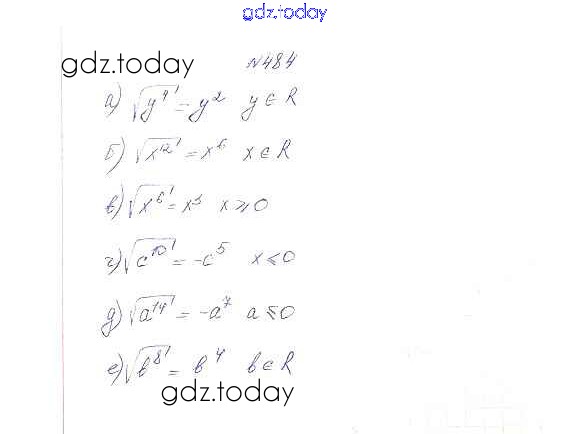 gdz.today
gdz.today №484
а) √y⁴ = y² y ∈ R
б) √x¹² = x⁶ x ∈ R
в) √x⁶ = x³ x ⩾ 0
г) √c¹⁰ = -c⁵ x ⩽ 0
д) √a¹⁴ = -a⁷ a ⩽ 0
е) √b⁸ = b⁴ b ∈ R
gdz.today